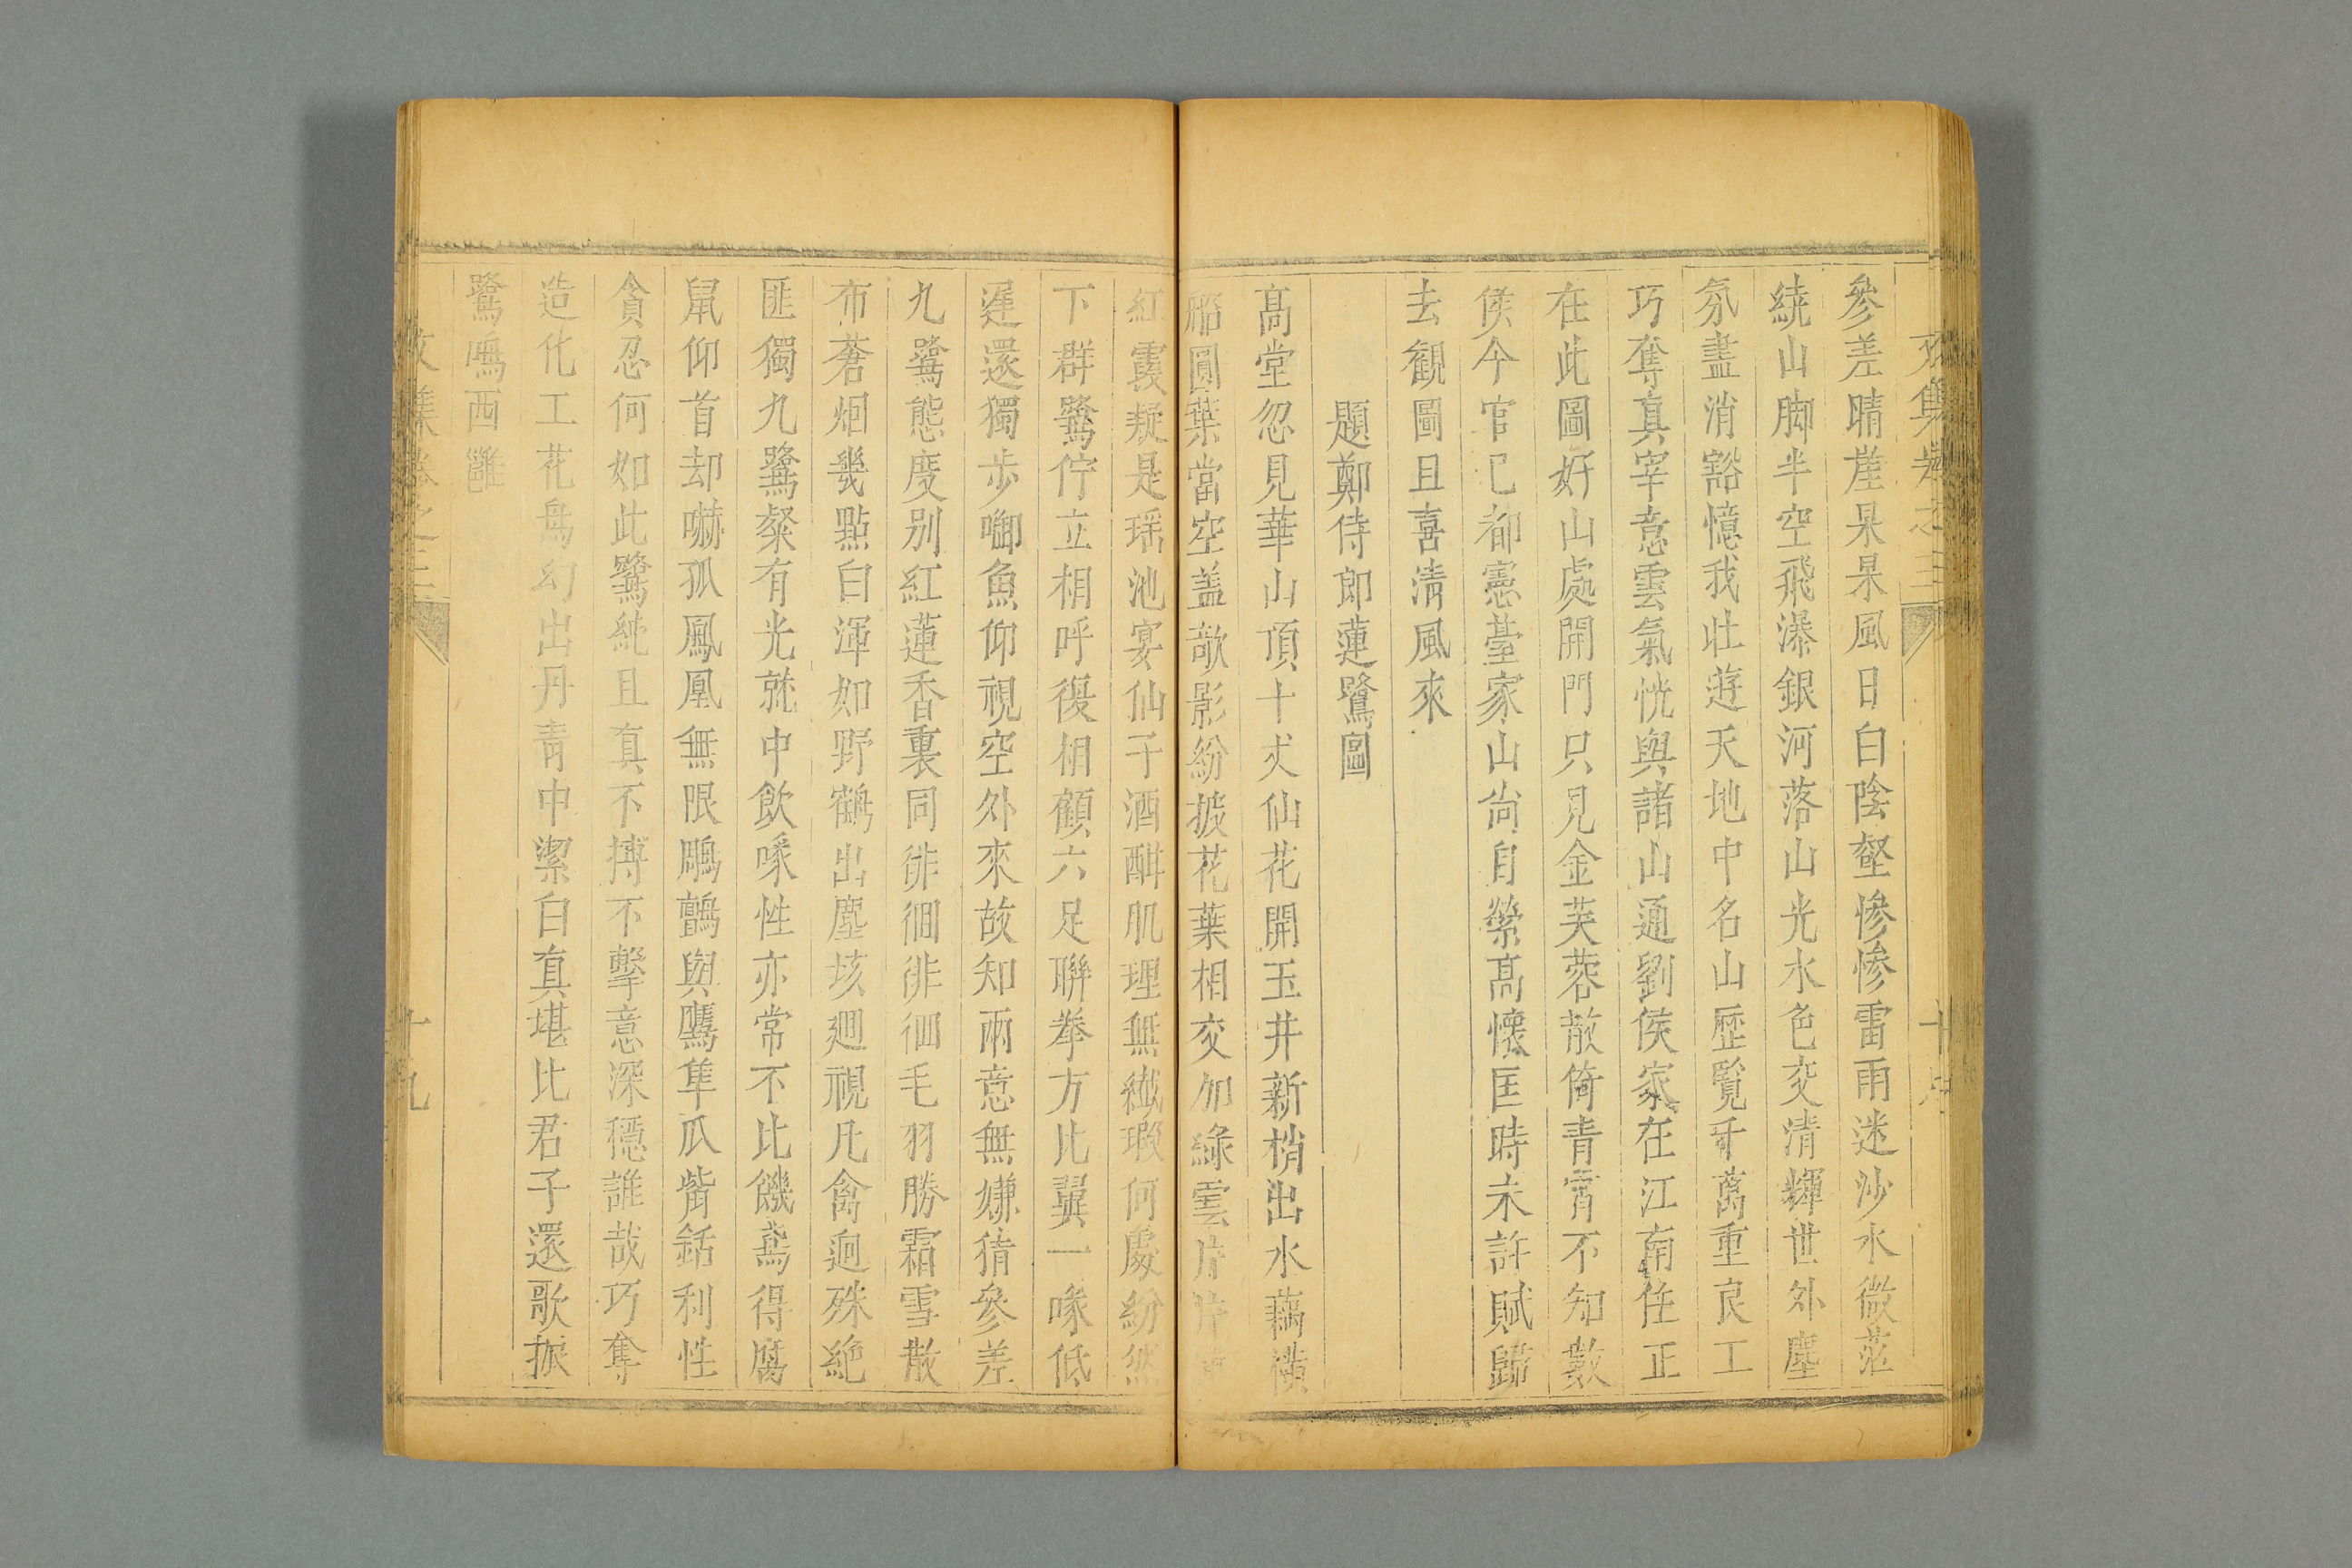 參差晴崖杲杲風日白陰壑慘慘雷雨迷沙水微茫
繞山脚半空飛瀑銀河落山光水色交清輝世外塵
氛盡消豁憶我壯遊天地中名山歷覽千萬重良工
巧奪真宰意雲氣恍與諸山通劉侯家在江南住正
在此圖好山處開門只見金芙蓉散倚青霄不知數
侯今官已都憲薹家山尚自縈高懷匡時未許賦歸
去觀圖且喜清風來
題鄭侍郎蓮鷺圖
高堂忽見華山頂十丈仙花開玉井新梢出水藕橫
船圓葉當空盖欹影紛披花葉相交加綠雲片片
紅霞疑是瑶池宴仙子酒酣肌理無纖瑕何處紛然
下群鷺佇立相呼復相顧六足聯拳方比翼一喙低
遲還獨步啣魚仰視空外來故知兩意無嫌猜參差
九鷺態度别紅蓮香裏同徘徊徘徊毛羽勝霜雪散
布蒼烟幾點白渾如野鶴出塵垓廻視凡禽迥殊絶
匪獨九鷺粲有光就中飲啄性亦常不比饑鳶得腐
鼠仰首却嚇孤鳳凰無限鵰鶻與鷹隼瓜觜銛利性
貪忍何如此鷺純且真不搏不擊意深穩誰哉巧奪
造化工花鳥幻出丹青中潔白真堪比君子還歌振
鷺鳴西雝
文集卷之三
十九